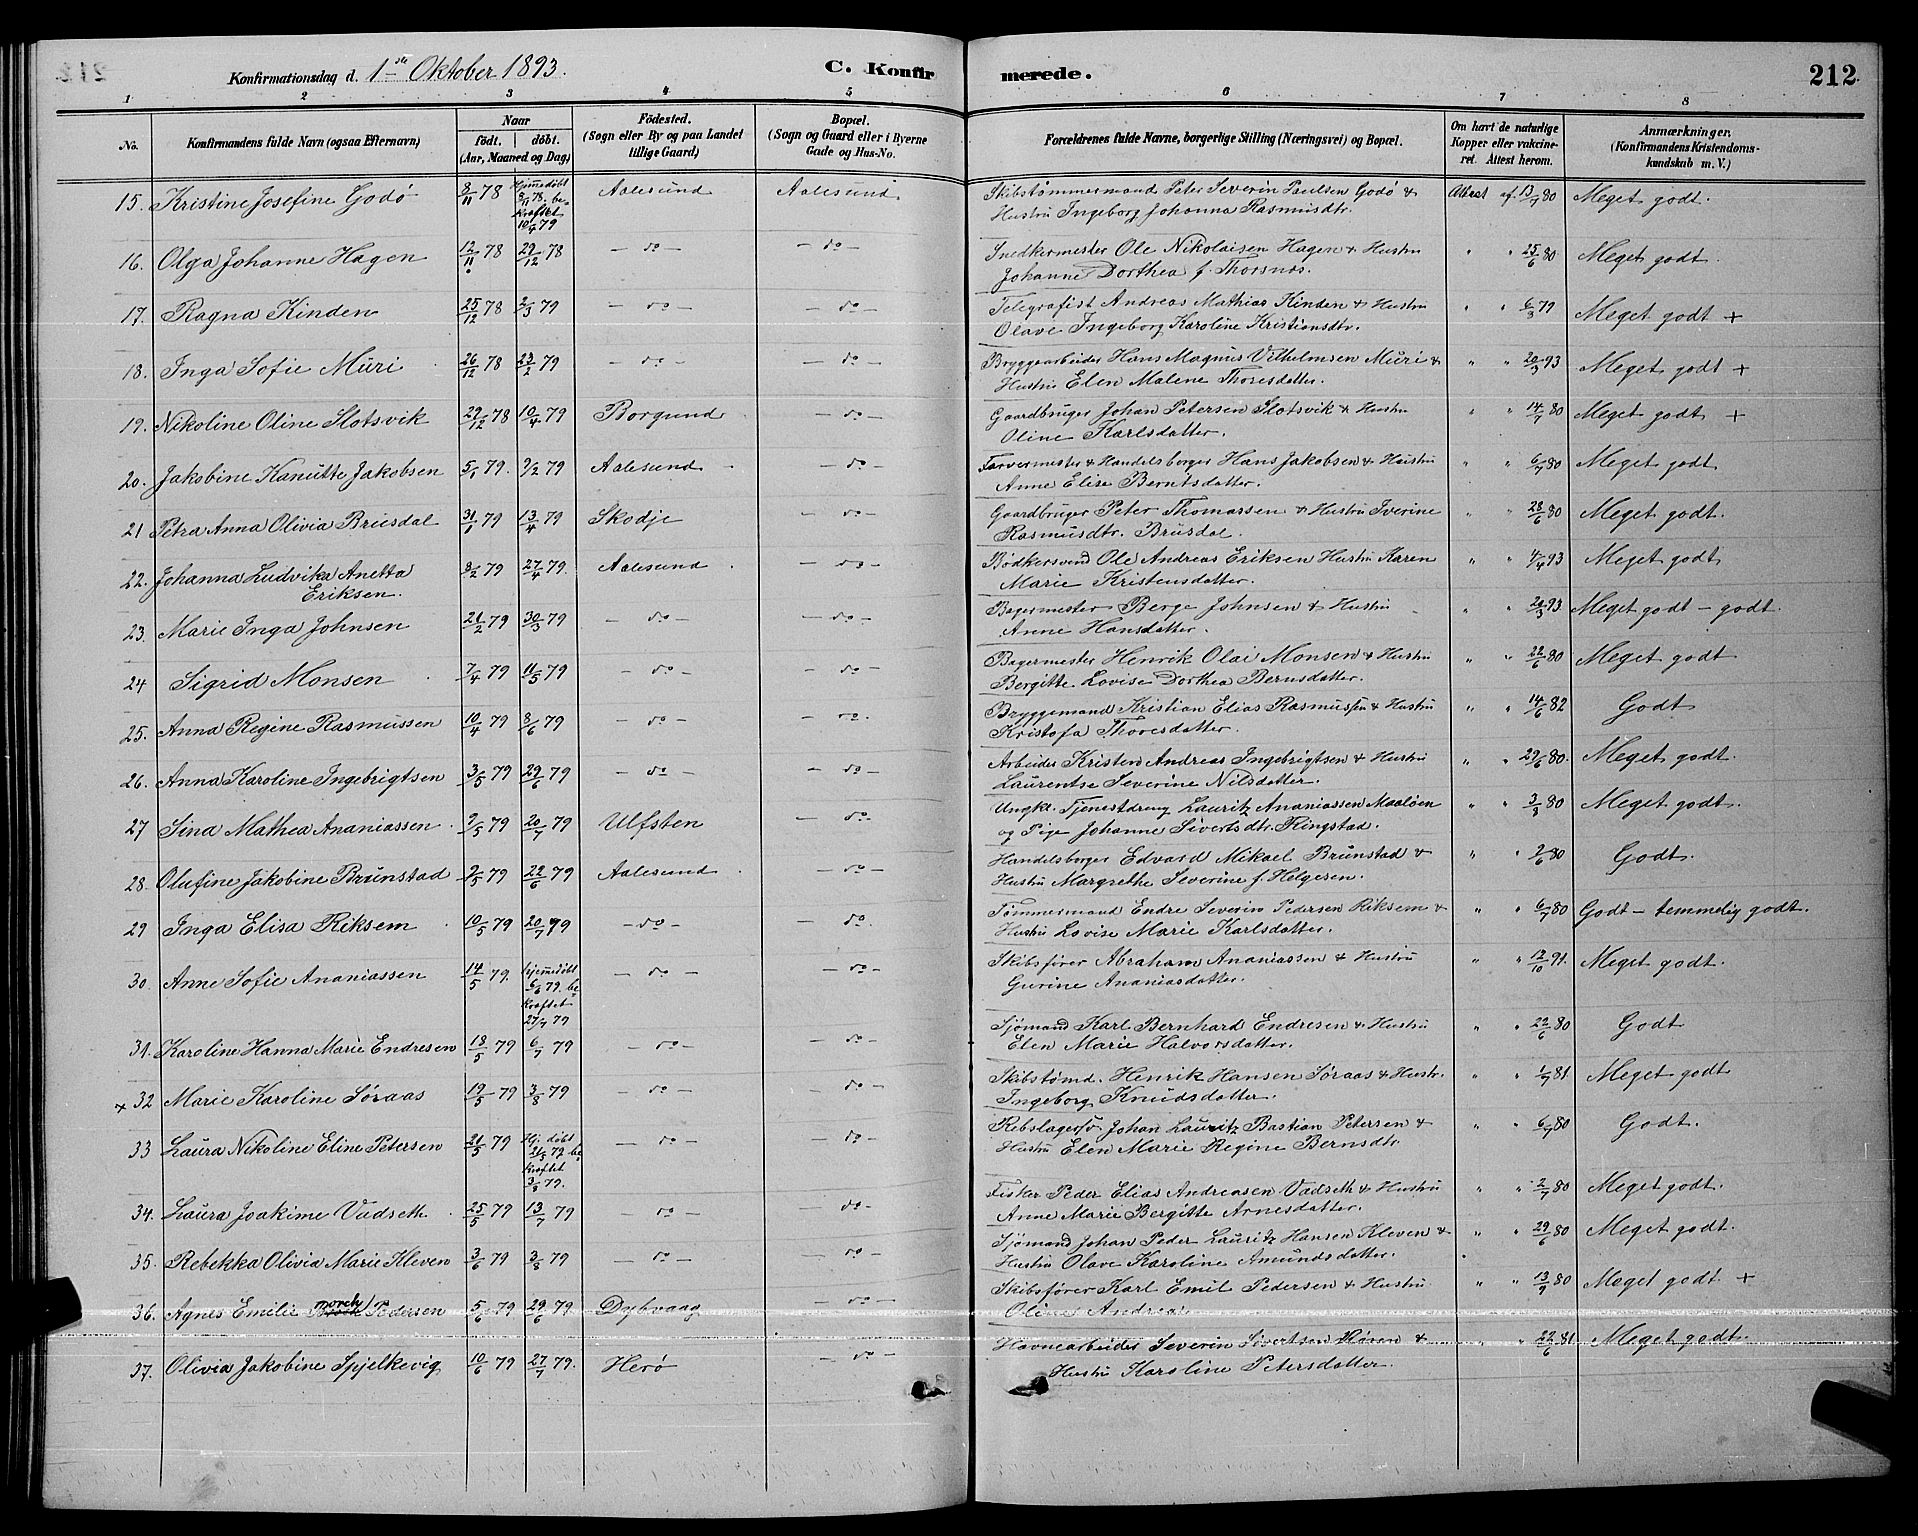 Konfirmationsdag d. 1ste Oktober 1893.
C. Konfirmerede.
212
1 2 3 4 5 6 7 8
No.
Konfirmandens fulde Navn (ogsaa Efternavn)
Naar
født. døbt.
(Aar, Maaned og Dag)
Fødested.
(Sogn eller By og paa Landet
tillige Gaard)
Bopæl.
(Sogn og Gaard eller i Byerne
Gade og Hus-No.
Forældrenes fulde Navne, borgerlige Stilling (Næringsvei) og Bopæl.
Om havt de naturlige
Kopper eller vakcine-
ret. Attest herom.
Anmærkninger.
(Konfirmandens Kristendoms-
kundskab m. V.)
15. Kristine Josefine Godø 8/11 78 Hjemmedøbt 8/11 78. bekræftet 10/4 79 Aalesund Aalesund Skibstømmermand Peter Severin Paulsen Godø & Hustru Ingeborg Johanna Rasmusdtr. Attest af 13/7 80 Meget godt.
16. Olga Johanne Hagen 12/11 78 29/12 78 - do - - do - Snedkermester Ole Nikolaisen Hagen & Hustru Johanne Dorthea f. Thorsnes. " " 25/6 80 Meget godt.
17. Ragna Kinden 25/12 78 2/3 79 - do - - do - Telegrafist Andreas Mathias Kinden & Hustru Olave Ingeborg Karoline Kristiansdtr. " " 6/3 79 Meget godt +
18. Inga Sofie Muri 26/12 78 23/2 79 - do - - do - Bryggearbeider Hans Magnus Vilhelmsen Muri & Hustru Elen Malene Thoresdatter. " " 20/3 93 Meget godt +
19. Nikoline Oline Slotsvik 29/12 78 10/4 79 Borgund - do - Gaardbruger Johan Petersen Slotsvik & Hustru Oline Karlsdatter. " " 14/7 80 Meget godt +
20. Jakobine Kanutte Jakobsen 5/1 79. 9/2 79 Aalesund - do - Farvermester & Handelsborger Hans Jakobsen & Hustru Anne Elise Berntsdatter. " " 6/7 80 Meget godt
21 Petra Anna Olivia Brusdal 31/1 79 13/4 79 Skodje - do - Gaardbruger Peter Thomassen & Hustru Iverine Rasmusdtr. Brusdal. " " 28/6 80 Meget godt.
22. Johanna Ludvika Anetta Eriksen. 8/2 79 27/4 79. Aalesund - do - Bødkersvend Ole Andreas Eriksen Hustru Karen Marie Kristensdatter. " " 4/4 93 Meget godt
23. Marie Inga Johnsen 21/2 79 30/3 79 - do - - do - Bagermester Berge Johnsen & Hustru Anne Hansdatter. " " 20/3 93. Meget godt - godt.
24 Sigrid Monsen 7/4 79 11/5 79 - do - do - Bagermester Henrik Olai Monsen & Hustru Bergitte Lovise Dorthea Bernsdatter. " " 22/6 80 Meget godt
25. Anna Regine Rasmussen 10/4 79 8/6 79 - do - - do. Bryggemand Kristian Elias Rasmussen & Hustru Kristofa Thoresdatter. " " 14/6 82 Godt
26. Anna Karoline Ingebrigtsen 3/5 79 29/6 79 - do - - do - Arbeider Kristen Andreas Ingebrigtsen & Hustru Laurentse Severine Nilsdatter. " " 29/6 80. Meget godt.
27 Sina Mathea Ananiassen 9/5 79 20/7 79 Ulfsten - do - Ungk. Tjenestdreng Lauritz Ananiassen Maaløen og Pige Johanne Sivertsdtr. Ringstad. " " 3/3 80 Meget godt.
28. Olufine Jakobine Brunstad 9/5 79 22/6 79 Aalesund - do - Handelsborger Edvard Mikael Brunstad & Hustru Margrethe Severine f. Helgesen. " " 2/6 80 Godt.
29 Inga Elisa Riksem 10/5 79 20/7 79 - do - do. Tømmermand Endre Severin Pedersen Riksem & Hustru Lovise Marie Karlsdatter. " " 6/7 80 Godt - temmelig godt.
30. Anne Sofie Ananiassen 14/5 79. Hjemmedøbt 6/6 79. bekræftet 27/7 79 - do - - do - Skibsfører Abraham Ananiassen & Hustru Gurine Ananiasdatter. " " 12/10 91. Meget godt.
31. Karoline Hanna Marie Endresen 18/5 79 6/7 79 - do - - do - Sjømand Karl Bernhard Endresen & Hustru Elen Marie Halvorsdatter. " " 22/6 80 Godt
+ 32 Marie Karoline Søraas 19/5 79 3/8 79 - do - do - Skibstømd. Henrik Hansen Søraas & Hustr. Ingeborg Knudsdatter. " " 1/7 81 Meget godt
33 Laura Nikoline Eline Petersen 21/5 79 Hj. døbt 21/5 79 bekræftet 3/8 79. - do - - do - Rebslagersv. Johan Lauritz Bastian Petersen & Hustru Elen Marie Regine Bernsdtr. " " 6/7 80 Godt.
34. Laura Joakime Vadseth 25/5 79 13/7 79 - do - - do - Fisker Peder Elias Andreasen Vadseth & Hustru Anne Marie Bergitte Arnesdatter. " " 2/7 80 Meget godt.
35. Rebekka Olivia Marie Kleven 3/6 79 3/8 79 - do - - do - Sjømand Johan Peder Lauritz Hansen Kleven & Hustru Olave Karoline Amundsdatter. " " 29/6 80 Meget godt.
36. Agnes Emilie Morch Pedersen 5/6 79 29/6 79. Dybvaag - do - Skibsfører Karl Emil Pedersen & Hustru Oline Andrea. " " 13/7 80 Meget godt +
37. Olivia Jakobine Spjelkevig 10/6 79 27/7 79. Herø - do - Havnearbeider Severin Sivertsen & Hustru Karoline Petersdatter. " " 22/6 81 Meget godt.